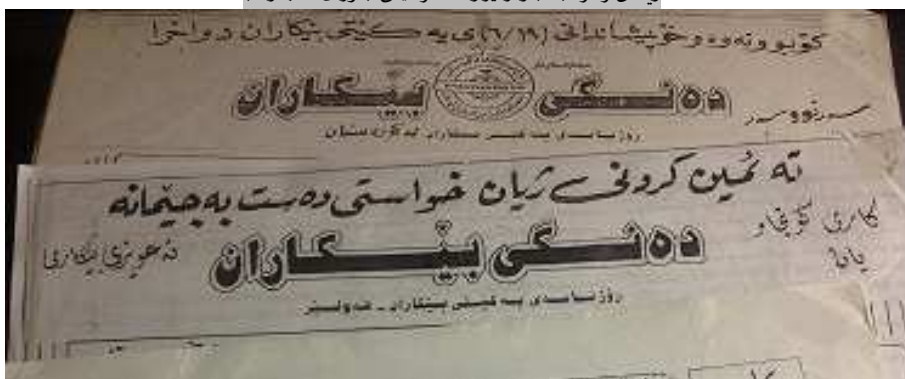 کۆبوونەوە و خۆپیشاندانی (٦/١٩)ی یەکێتی بێکاران دواخرا
دەنگی بێکاران
سەرنووسەر
رۆژنامەی یەکێتی بێکاران لە کوردستان
تەئمین کردنی ژیان خواستی دەست بەجێمانە
کارێ گونجاو
یان
دەنگی بێکاران
رۆژنامەی یەکێتی بێکاران - هەولێر